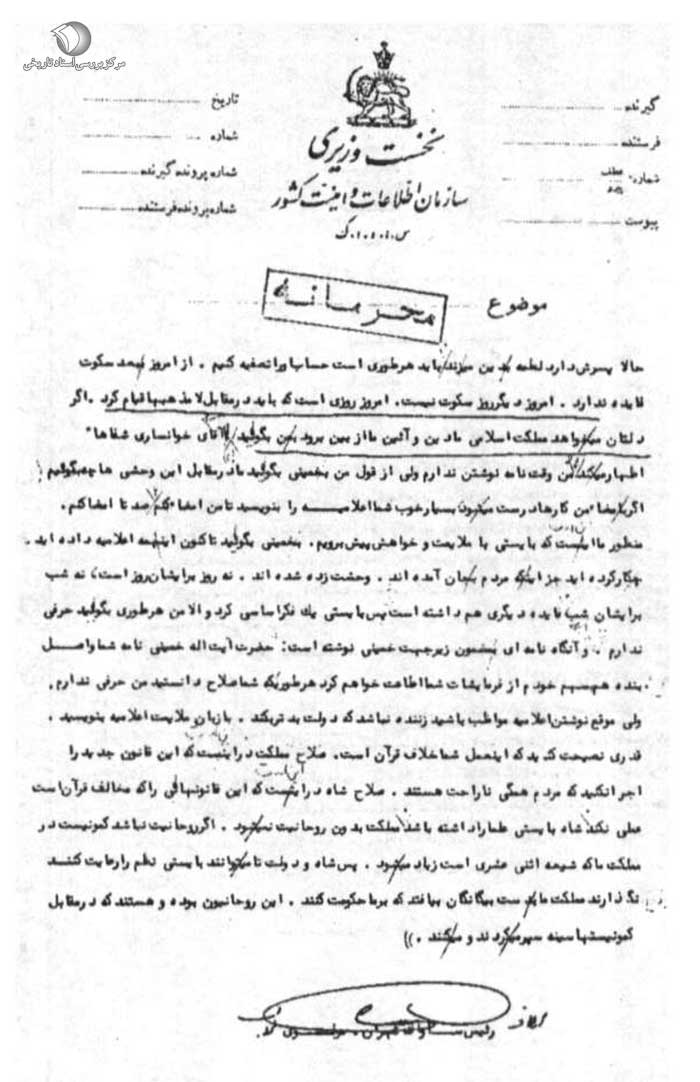 مرکز بررسی اسناد تاریخی
نخست وزیری
سازمان اطلاعات و امنیت کشور
س.ا.و.ا.ک
گیرنده
فرستنده
شماره
پیوست
تاریخ
شماره
شماره پرونده گیرنده
شماره پرونده فرستنده
موضوع
محرمانه
حالا پسرش دارد لطمه به دین میزند باید هرطوری است حساب او را تصفیه کنیم . از امروز ببعد سکوت
فایده ندارد . امروز دیگر روز سکوت نیست. امروز روزی است که باید در مقابل لامذهبها قیام کرد . اگر
دلتان میخواهد مملکت اسلامی ما دین و آئین ما از بین برود بمن بگوئید . آقای خوانساری شفاها"
اظهار میکند من وقت نامه نوشتن ندارم ولی از قول من بخمینی بگوئید ما در مقابل این وحشی ها چه بگوئیم
اگر با امضا' من کارها درست میشود بسیار خوب شما اعلامیه را بنویسید تا من امضا' کنم صد تا امضا کنم .
منظور ما اینست که بایستی با ملایمت و خواهش پیش برویم . بخمینی بگوئید تاکنون اینهمه اعلامیه داده اید .
چکار کرده اید جز اینکه مردم بجان آمده اند . وحشت زده شده اند . نه روز برایشان روز است، نه شب
برایشان شب فایده دیگری هم داشته است پس بایستی یک فکر اساسی کرد و الا من هر طوری بگوئید حرفی
ندارم . و آنگاه نامه ای بمضمون زیر جهت خمینی نوشته است: حضرت آیت اله خمینی نامه شما واصل
بنده هم بسهم خودم از فرمایشات شما اطاعت خواهم کرد هرطوریکه شما صلاح دانستید من حرفی ندارم .
ولی موقع نوشتن اعلامیه مواظب باشید زننده نباشد که دولت بدتر بکند . با زبان ملایمت اعلامیه بنویسید .
قدری نصیحت کنید که اینعمل شما خلاف قرآن است. صلاح مملکت در اینست که این قانون جدید را
اجرا نکنید که مردم همگی ناراحت هستند . صلاح شاه در اینست که این قانونهائی را که مخالف قرآن است
عملی نکند شاه بایستی علما را داشته باشد مملکت بدون روحانیت نمیشود . اگر روحانیت نباشد کمونیست در
مملکت ما که شیعه اثنی عشری است زیاد میشود . پس شاه و دولت تا میتوانند بایستی نظم را رعایت کنند
نگذارند مملکت ما بدست بیگانگان بیافتد که بر ما حکومت کنند . این روحانیون بوده و هستند که در مقابل
کمونیستها سینه سپر میکردند و میکنند . ))
رئیس ساواک تهران . مولوی